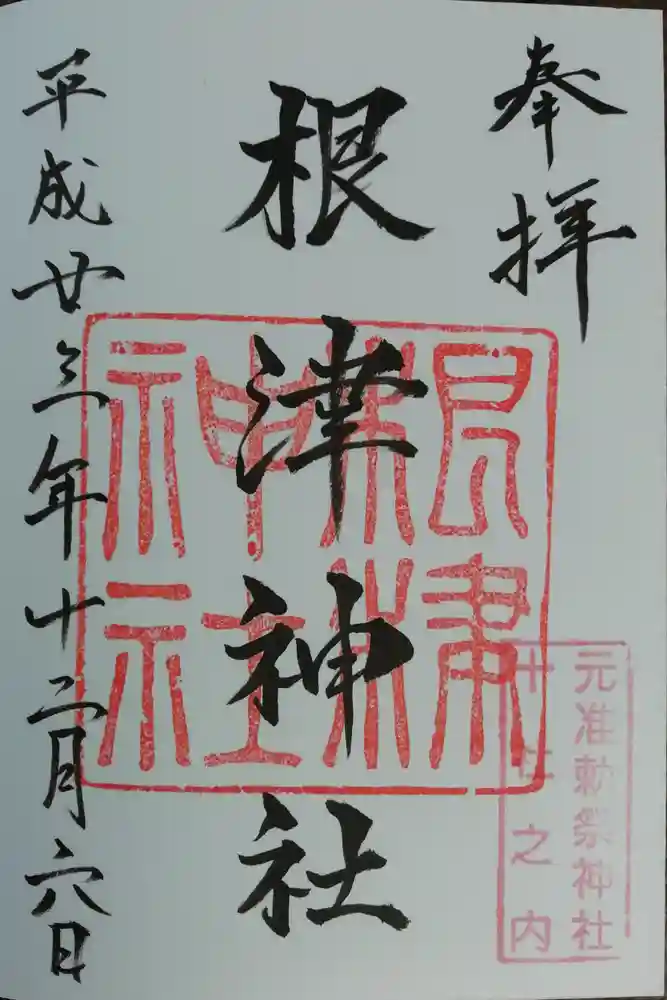 奉拝
根津神社
平成廿三年十二月六日
根津
神社
元准勅祭神社
十社之内